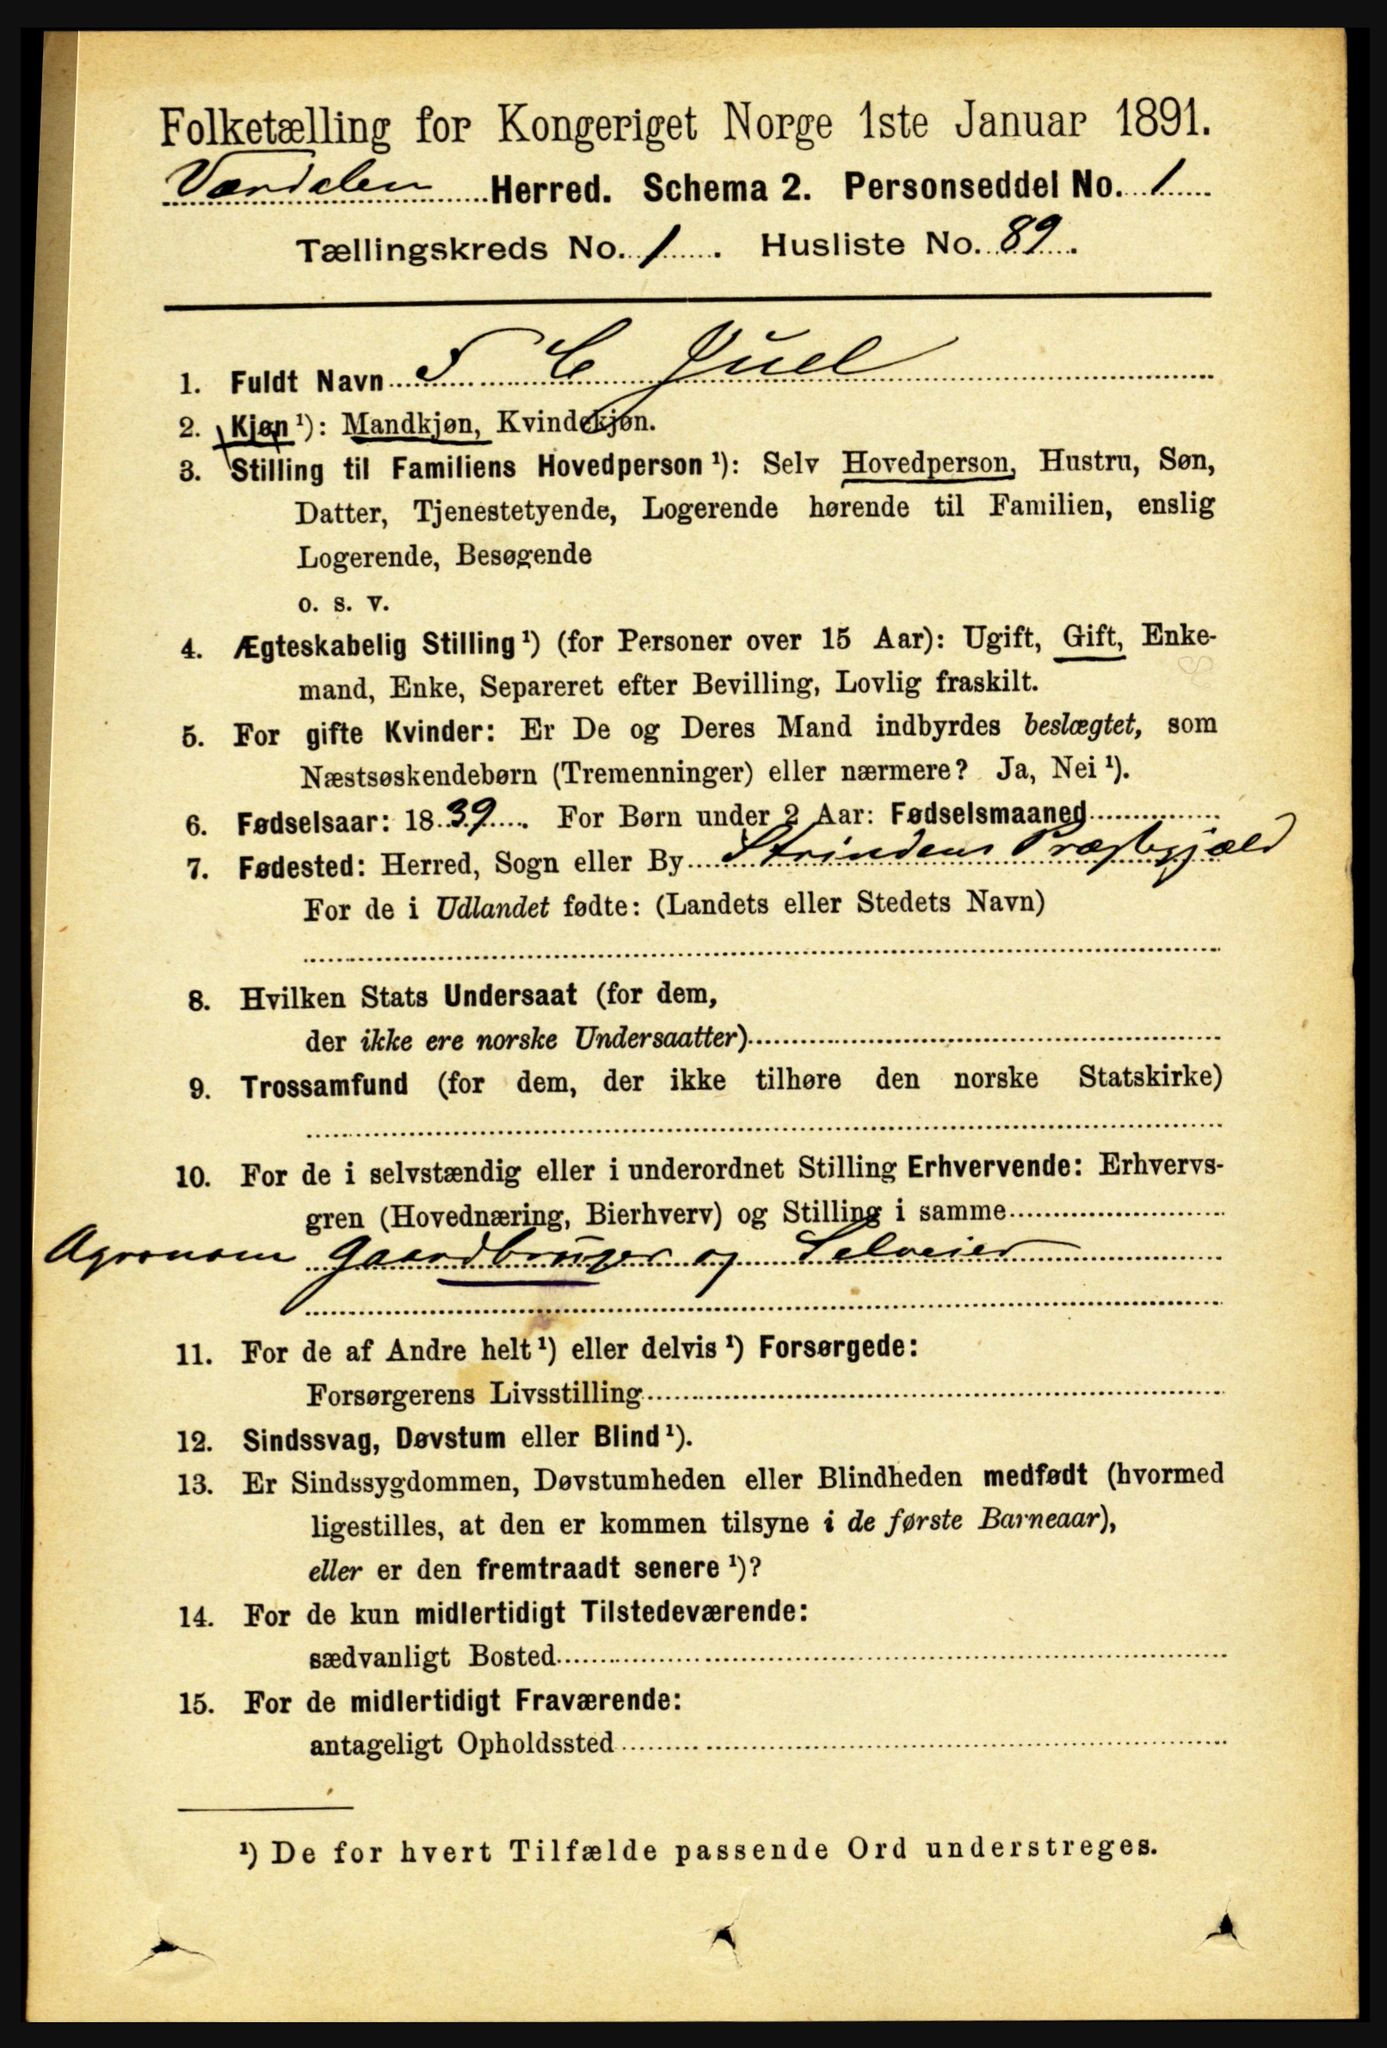 Folketælling for Kongeriget Norge 1ste Januar 1891.
Værdalen Herred. Schema 2. Personseddel No. 1
Tællingskreds No. 1. Husliste No. 89.
1. Fuldt Navn F C Juel
2. Kjøn ¹): Mandkjøn, Kvindekjøn.
3. Stilling til Familiens Hovedperson ¹): Selv Hovedperson, Hustru, Søn,
Datter, Tjenestetyende, Logerende hørende til Familien, enslig
Logerende, Besøgende
o. s. v.
4. Ægteskabelig Stilling ¹) (for Personer over 15 Aar): Ugift, Gift, Enke-
mand, Enke, Separeret efter Bevilling, Lovlig fraskilt.
5. For gifte Kvinder: Er De og Deres Mand indbyrdes beslægtet, som
Næstsøskendebørn (Tremenninger) eller nærmere? Ja, Nei ¹).
6. Fødselsaar: 1839. For Børn under 2 Aar: Fødselsmaaned
7. Fødested: Herred, Sogn eller By Strindens Præstegjæld
For de i Udlandet fødte: (Landets eller Stedets Navn)
8. Hvilken Stats Undersaat (for dem,
der ikke ere norske Undersaatter)
9. Trossamfund (for dem, der ikke tilhøre den norske Statskirke)
10. For de i selvstændig eller i underordnet Stilling Erhvervende: Erhvervs-
gren (Hovednæring, Bierhverv) og Stilling i samme
Agronom Gaardbruger og Selveier
11. For de af Andre helt ¹) eller delvis ¹) Forsørgede:
Forsørgerens Livsstilling
12. Sindssvag, Døvstum eller Blind ¹).
13. Er Sindssygdommen, Døvstumheden eller Blindheden medfødt (hvormed
ligestilles, at den er kommen tilsyne i de første Barneaar),
eller er den fremtraadt senere ¹)?
14. For de kun midlertidigt Tilstedeværende:
sædvanligt Bosted
15. For de midlertidigt Fraværende:
antageligt Opholdssted
¹) De for hvert Tilfælde passende Ord understreges.